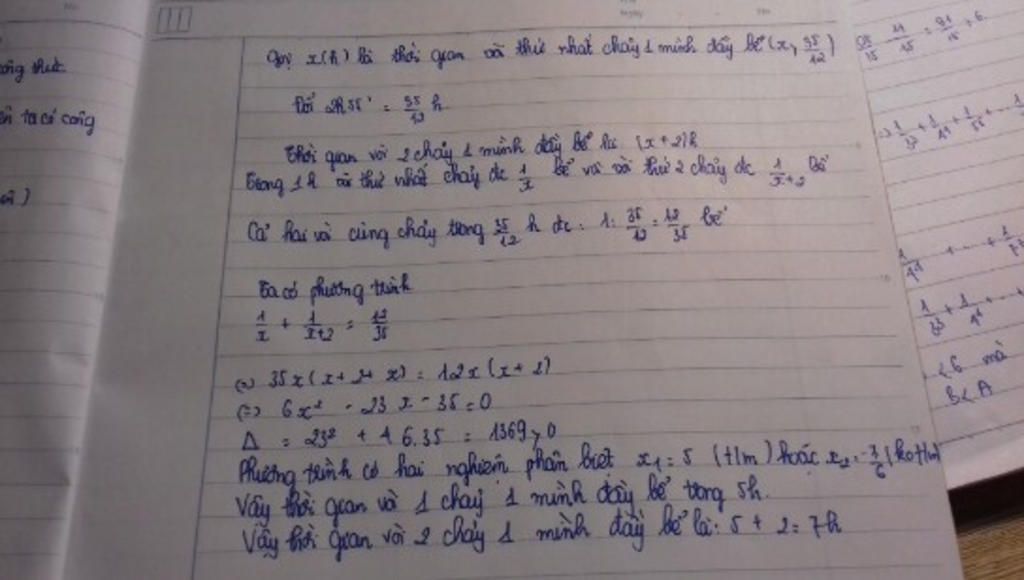 Gọi x(h) là thời gian vòi thứ nhất chảy 1 mình đầy bể (x > 35/12)
Đổi 2h55' = 35/12 h
Thời gian vòi 2 chảy 1 mình đầy bể là (x+2)h
Trong 1h vòi thứ nhất chảy đc 1/x bể và vòi thứ 2 chảy đc 1/x+2 bể
Cả hai vòi cùng chảy trong 35/12 h đc : 1: 35/12 = 12/35 bể
Ta có phương trình
1/x + 1/x+2 = 12/35
(=) 35x(x+2+x) = 12x(x+2)
(=) 6x² - 23x - 35 = 0
Δ = 23² + 4.6.35 = 1369 > 0
Phương trình có hai nghiệm phân biệt x₁ = 5 (t/m) hoặc x₂ = -7/6 (ko t/m)
Vậy thời gian vòi 1 chảy 1 mình đầy bể trong 5h.
Vậy thời gian vòi 2 chảy 1 mình đầy bể là: 5 + 2 = 7h
ông thức
ên ta có công
< 6 mà
B < A